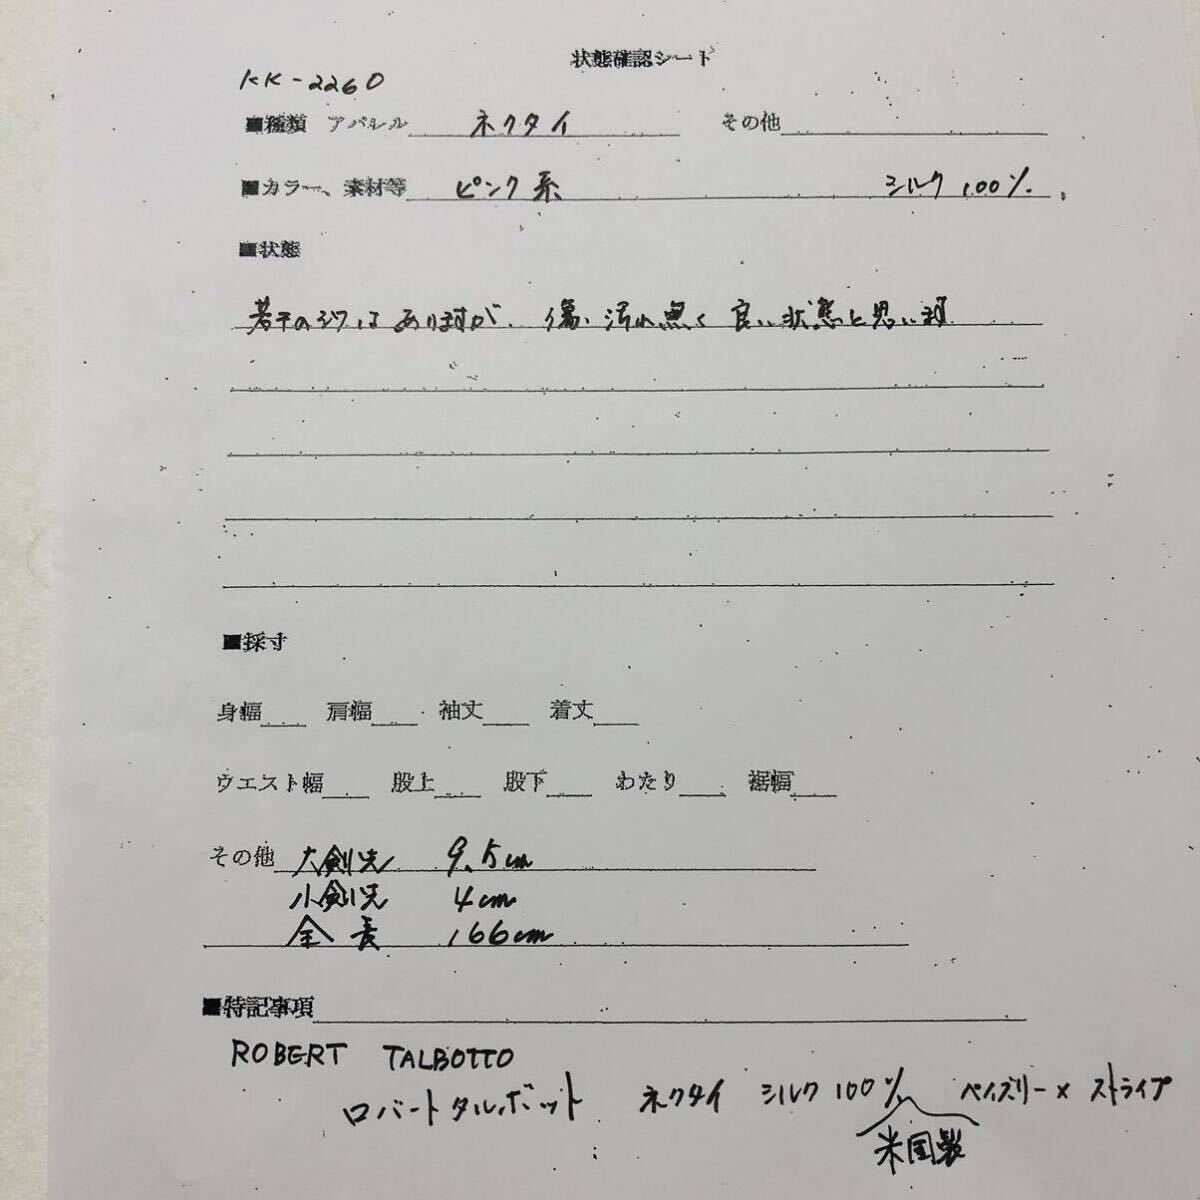 状態確認シート
KK-2260
■種類 アパレル ネクタイ その他
■カラー、素材等 ピンク系 シルク 100%
■状態
若干のシワはありますが、傷、汚れ無く良い状態と思います
■採寸
身幅 肩幅 袖丈 着丈
ウエスト幅 股上 股下 わたり 裾幅
その他 大剣先 9.5cm
小剣先 4cm
全長 166cm
■特記事項
ROBERT TALBOTTO
ロバートタルボット ネクタイ シルク 100% ペイズリー×ストライプ
米国製